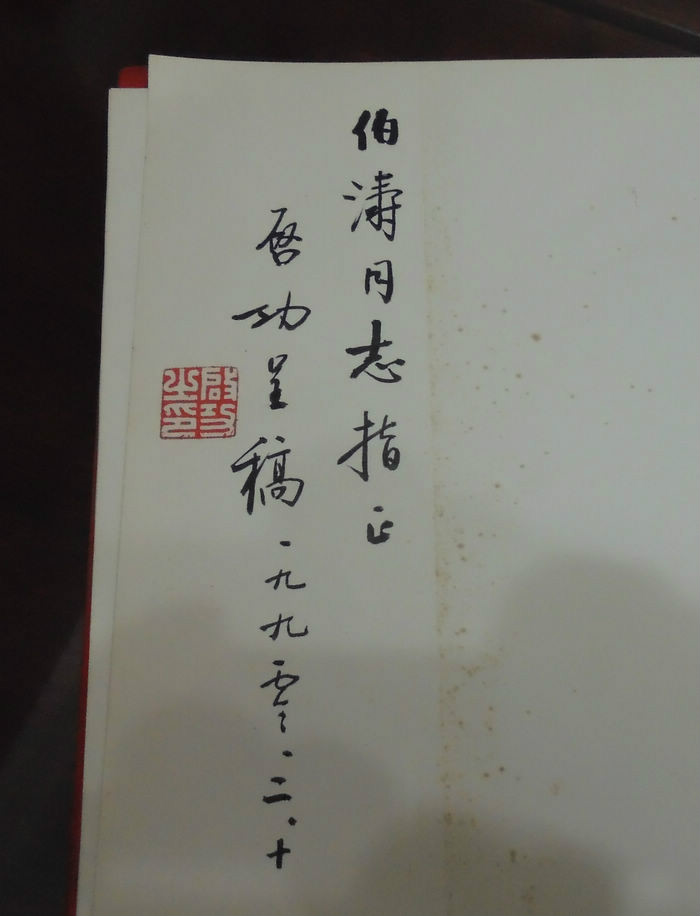 伯涛同志指正
启功呈稿 一九九零、二、十
啟功之印